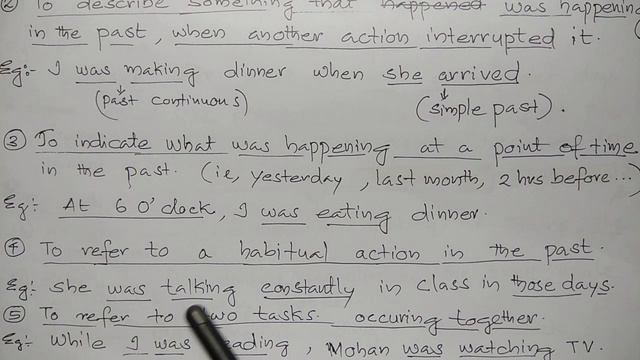 ② To describe something that happened was happening
in the past, when another action interrupted it.
Eg:- I was making dinner when she arrived.
(past continuous) (simple past).
③ To indicate what was happening at a point of time
in the past. (ie, yesterday, last month, 2 hrs before...)
Eg:- At 6 O'clock, I was eating dinner.
④ To refer to a habitual action in the past.
Eg:- She was talking constantly in class in those days.
⑤ To refer to two tasks occuring together.
Eg:- While I was reading, Mohan was watching TV.